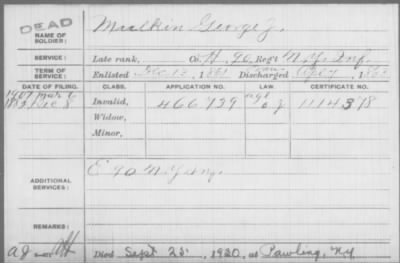 DEAD
NAME OF SOLDIER: Mulkin George Z.
SERVICE: Late rank, Co. H, 90 Reg't N.Y. Inf.
TERM OF SERVICE: Enlisted Dec 12, 1861 Discharged , 186
DATE OF FILING. CLASS. APPLICATION NO. LAW. CERTIFICATE NO.
1907 Mar 6
Dec 8 Invalid, 466739 1114378
Widow,
Minor,
ADDITIONAL SERVICES: E 90 N.Y. Inf.
REMARKS:
Died Sept 25, 1920, at Pawling, N.Y.